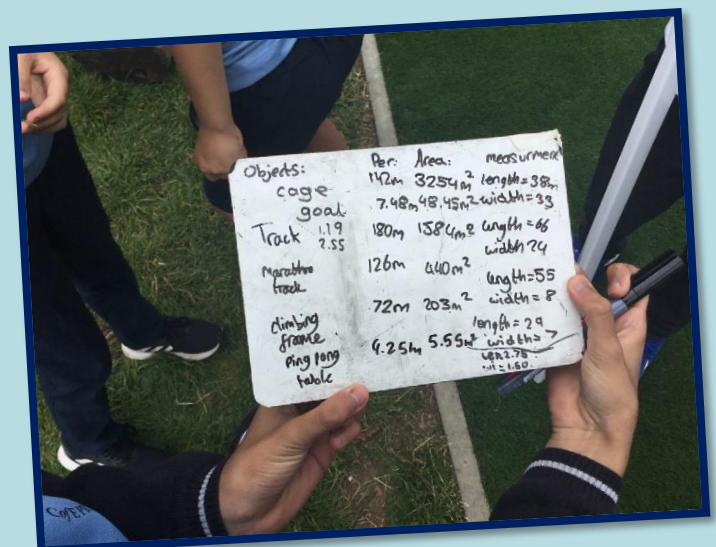 Objects: Per: Area: measurment
cage 142m 3254m² length = 38m
goal 7.48m 48.45m² width = 33
Track 1.19 180m 1584m² length = 66
2.55 width 24
Marathon track 126m 440m² length = 55
width = 8
climbing frame 72m 203m² length = 29
width = 7
ping pong table 5.55m²
2.75
1.50